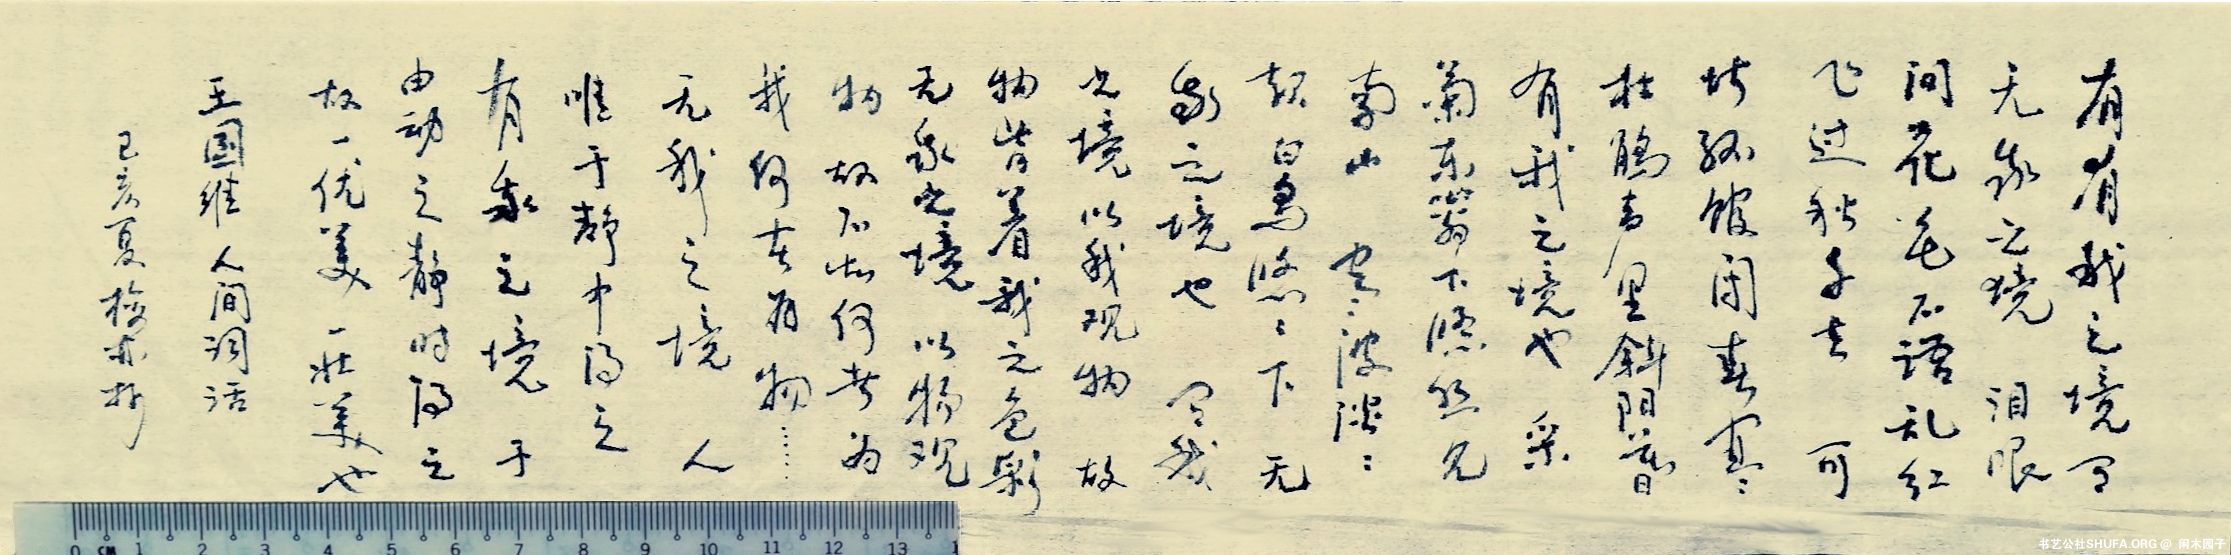 有有我之境 有
无我之境 泪眼
问花花不语乱红
飞过秋千去 可
堪孤馆闭春寒
杜鹃声里斜阳暮
有我之境也 采
菊东篱下悠然见
南山 寒寒波澹澹
起白鸟悠悠下 无
我之境也 有我
之境以我观物 故
物皆着我之色彩
无我之境 以物观
物 故不知何者为
我何者为物……
无我之境 人
唯于静中得之
有我之境 于
由动之静时得之
故一优美 一壮美也
王国维 人间词话
己亥夏
书艺公社SHUFA.ORG @ 闲木园子
0 CM 1 2 3 4 5 6 7 8 9 10 11 12 13